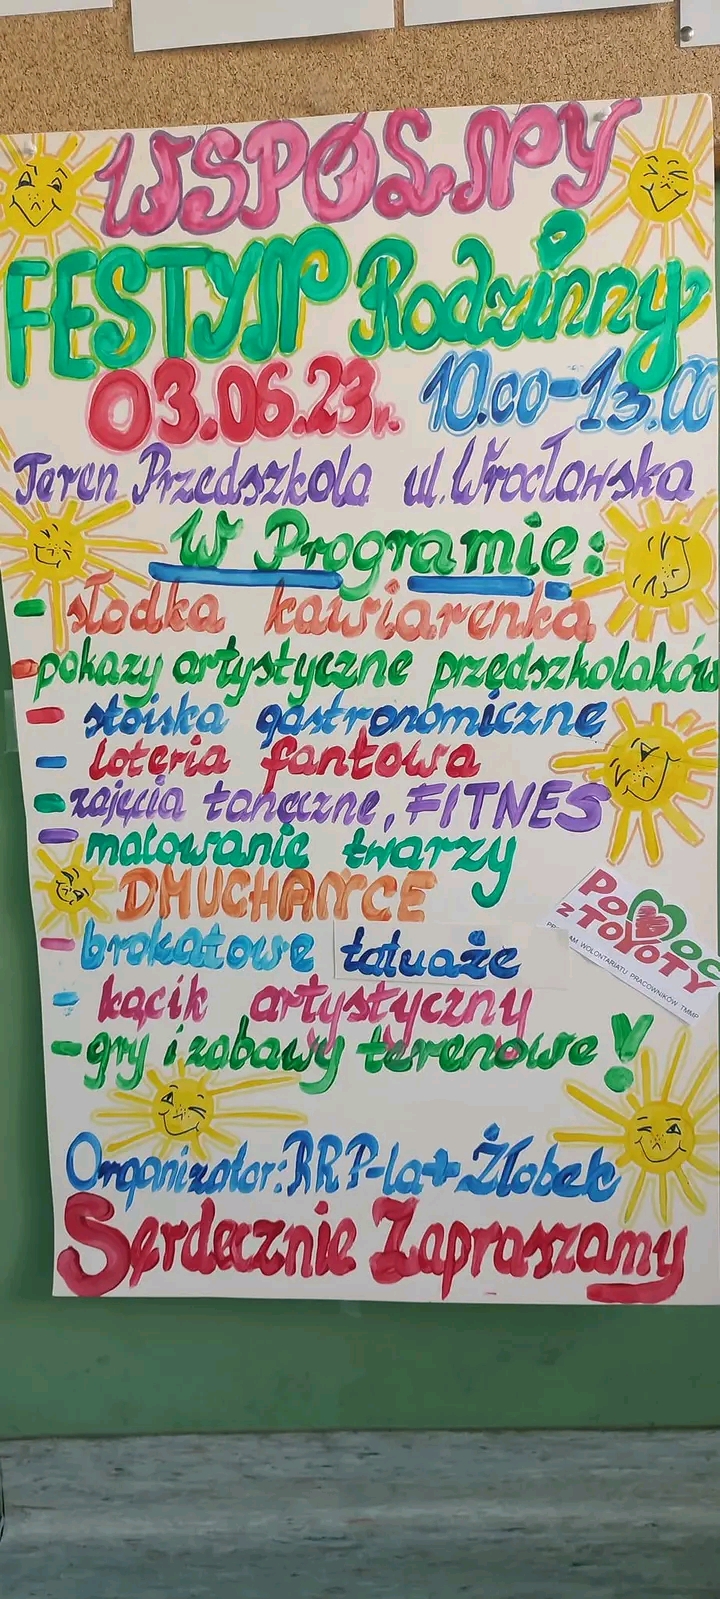 WSPÓLNY
FESTYN Rodzinny
03.06.23r. 10.00-13.00
Teren Przedszkola ul. Wrocławska
W Programie:
- słodka kawiarenka
- pokazy artystyczne przedszkolaków
- stoiska gastronomiczne
- loteria fantowa
- zajęcia taneczne, FITNES
- malowanie twarzy
DMUCHAŃCE
- brokatowe tatuaże
- kącik artystyczny
- gry i zabawy terenowe!
POMOC
z TOYOTY
PROGRAM WOLONTARIATU PRACOWNIKÓW TMMP
Organizator: RRP-la + Żłobek
Serdecznie Zapraszamy